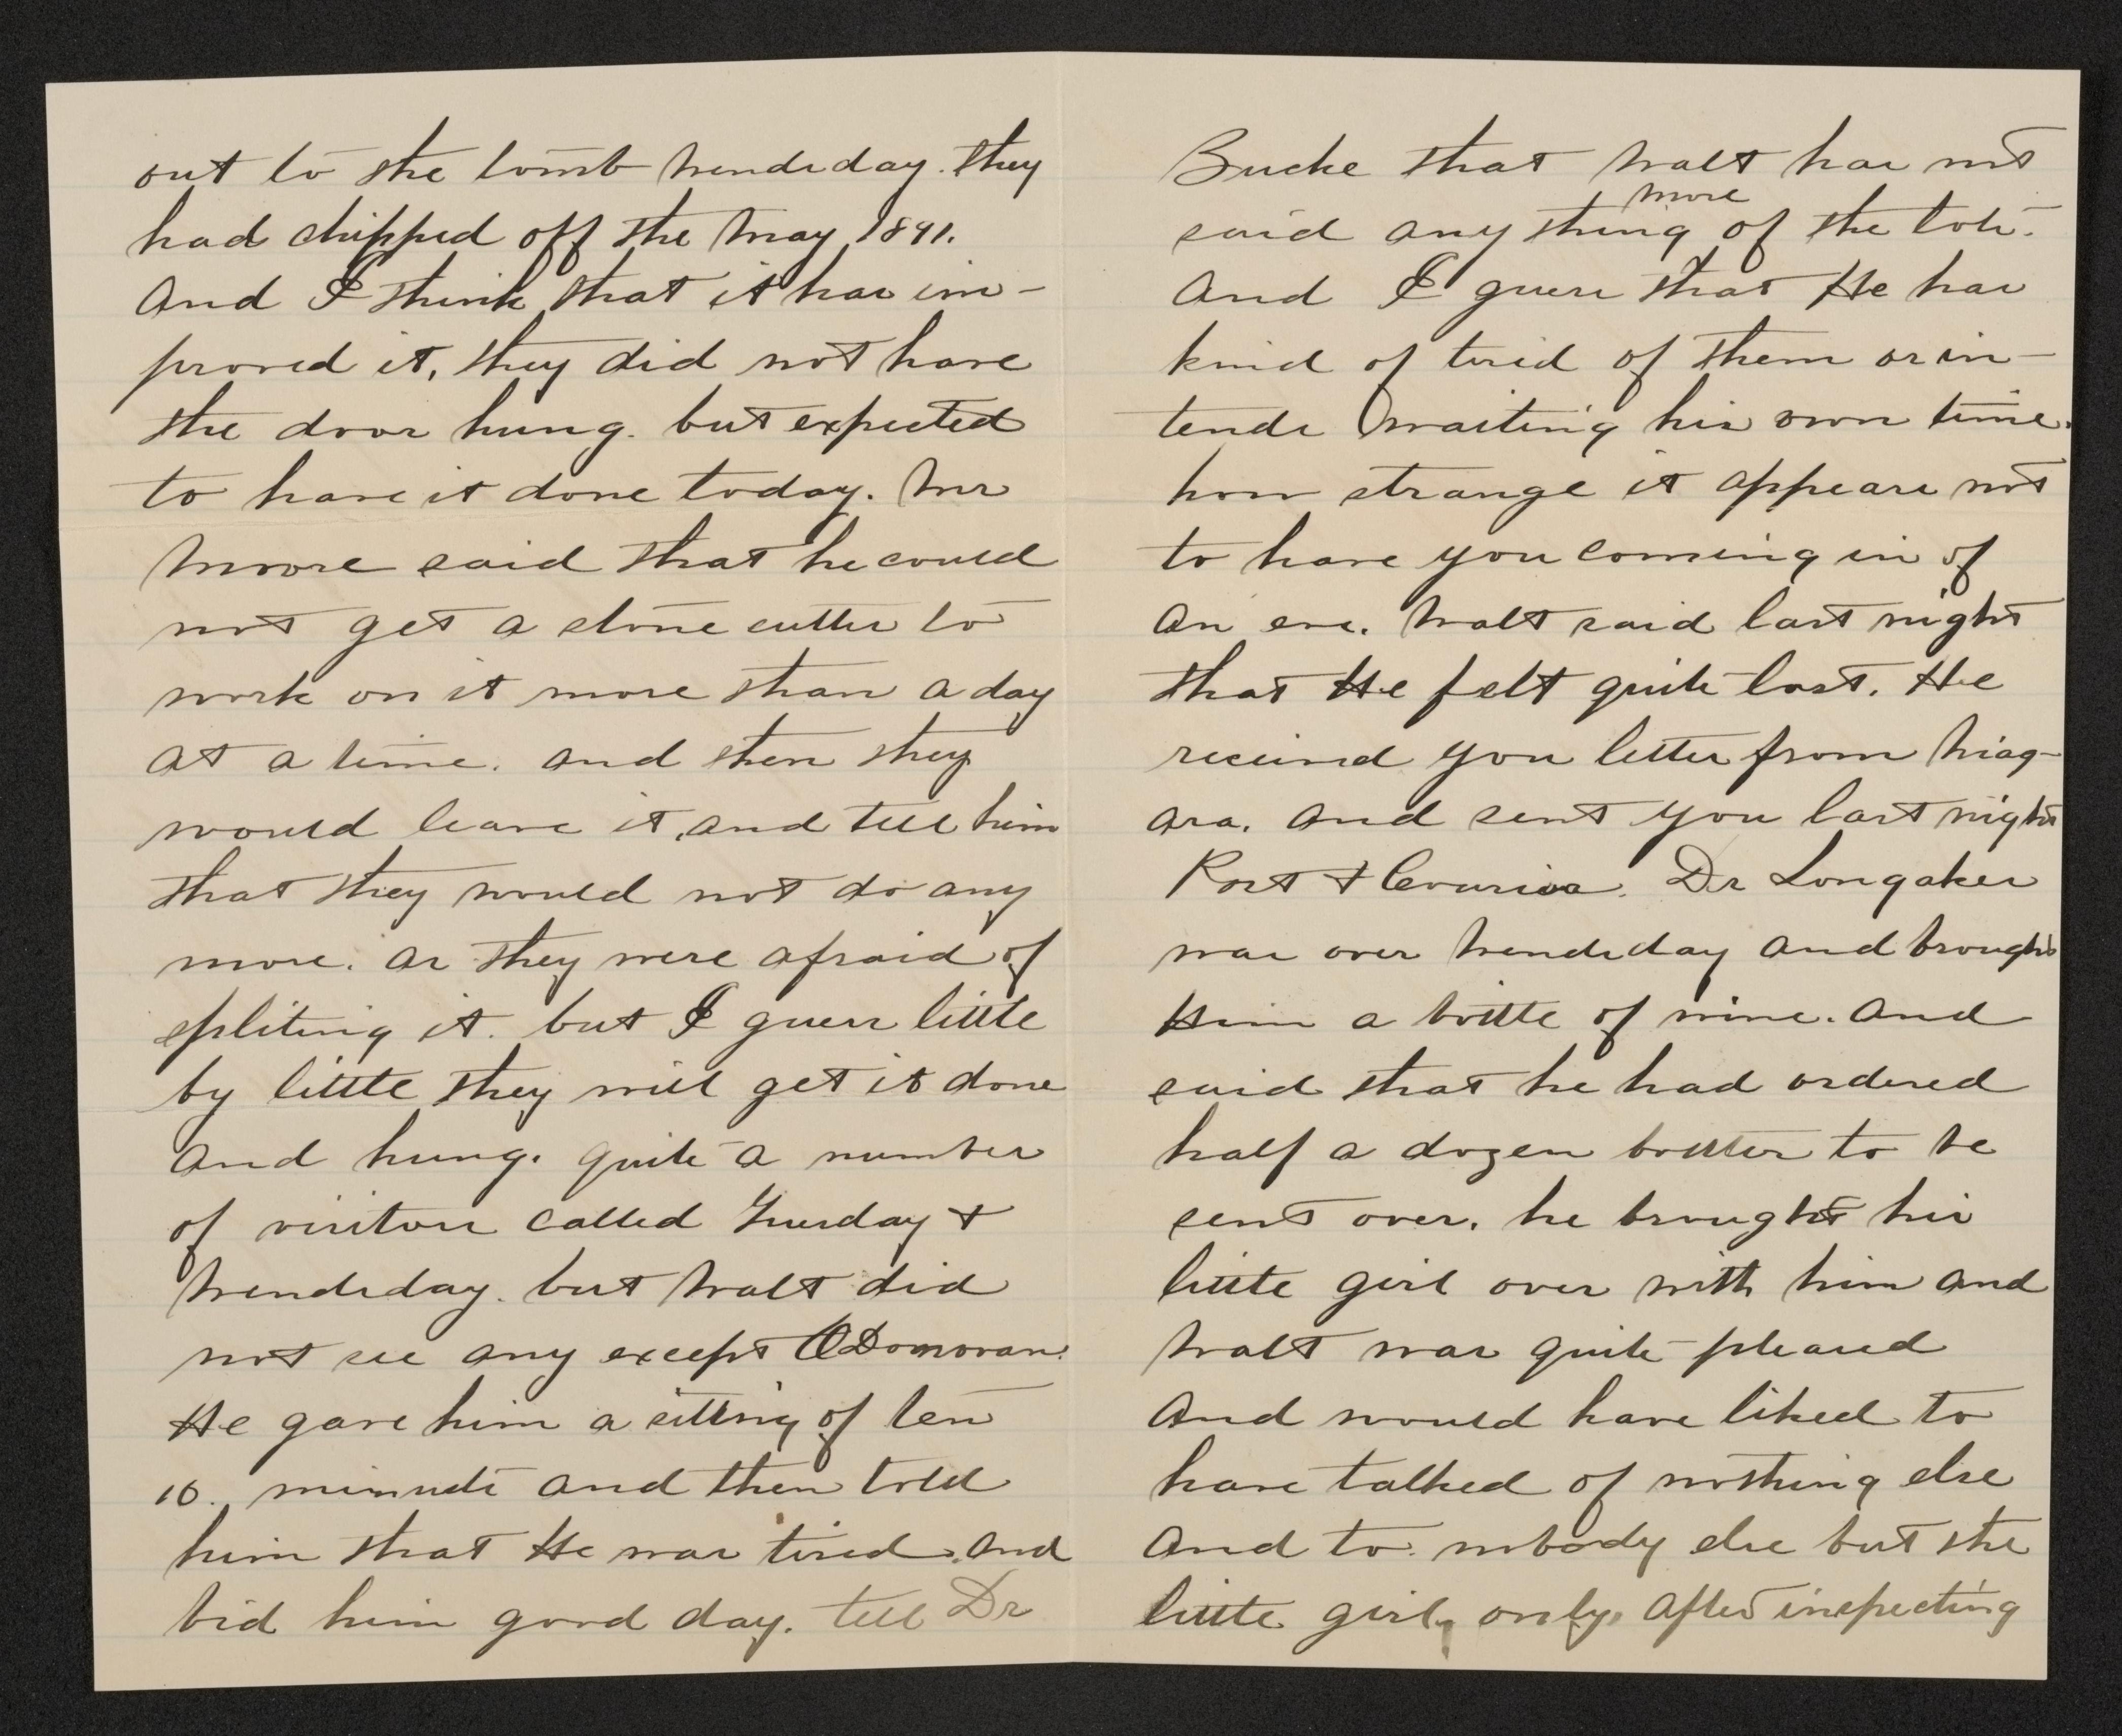 out to the tomb Wendsday. they
had chipped off the May 1891.
And I think that it has im-
proved it, they did not have
the door hung. but expected
to have it done today. Mr
Moore said that he could
not get a stone cutter to
work on it more than a day
at a time. and then they
would leave it, and tell him
that they would not do any
more. as they were afraid of
spliting it. but I guess little
by little they will get it done
And hung. quite a number
of visitors called Tuesday +
Wendsday. but Walt did
not see any except O'Donovan.
He gave him a sitting of ten
10. minuets and then told
him that He was tired. and
bid him good day. tell Dr
Bucke that Walt has not
said any thing more of the
And I guess that He has
kind of tired of them or in-
tends waiting his own time.
how strange it appears not
to have you coming in of
An eve. Walt said last night
that He felt quite lost. He
received you letter from Niag-
ara. and sent you last night
Post + Couriea. Dr Longaker
was over Wendsday and brought
Him a bottle of wine. and
said that he had ordered
half a dozen bottles to be
sent over. he brought his
little girl over with him and
Walt was quite pleased
And would have liked to
have talked of nothing else
And to. nobody else but the
little girl, only, after inspecting